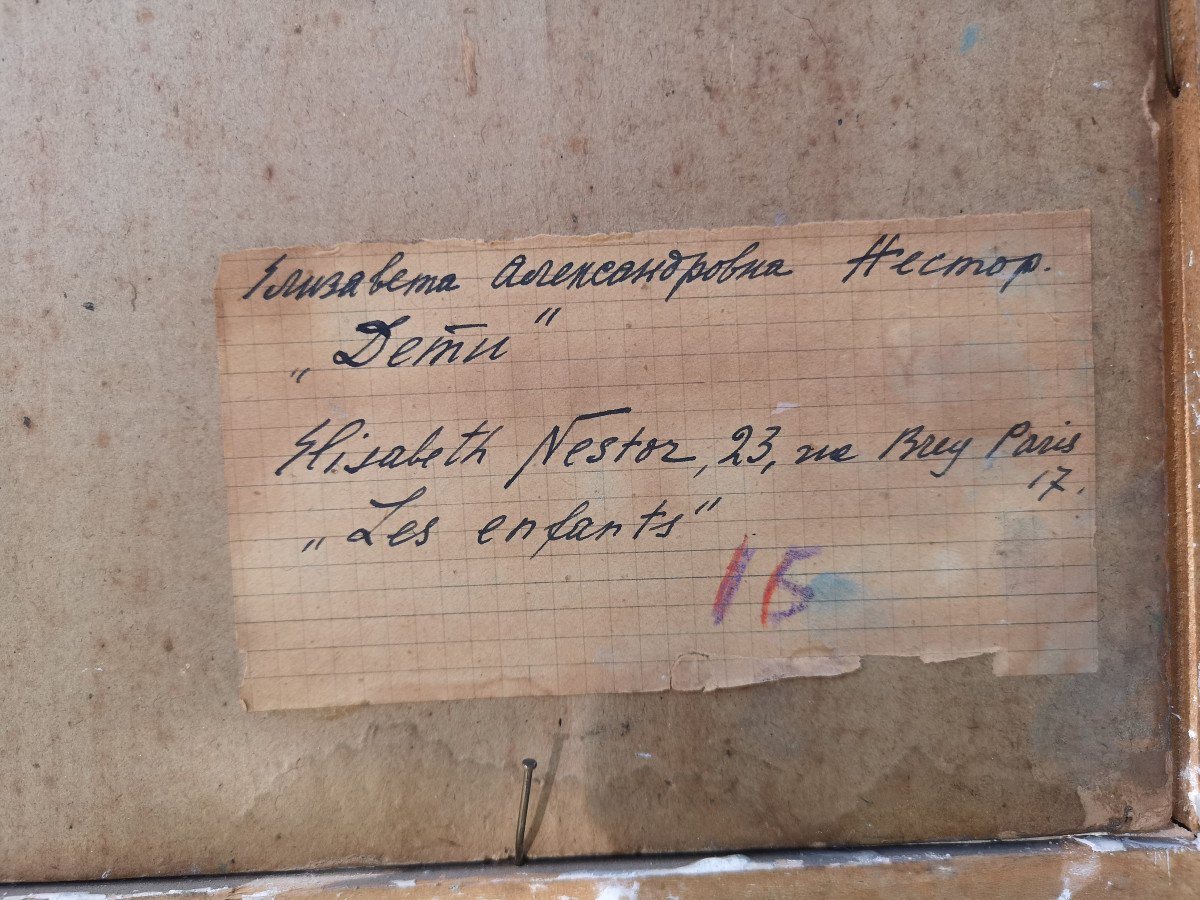 Елизавета Александровна Нестор.
„Дети"
Elisabeth Nestor, 23, rue Brey Paris
17.
„Les enfants"
15